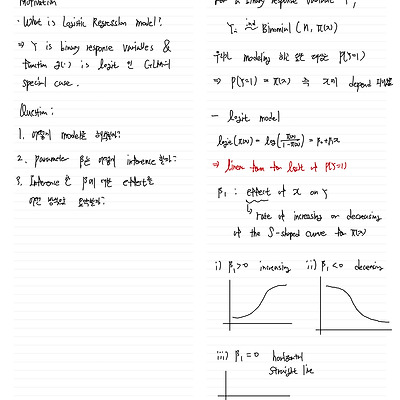 Motivation
· What is Logistic Regression model?
⇒ Y is binary response variables &
function g(·) is logit 인 GLM의
special case.
Question:
1. 어떻게 model을 해석할까?
2. parameter β은 어떻게 inference 할까?
3. Inference 한 β에 대한 effect를
어떤 방식으로 요약할까?
For a binary response variable Y,
Y ~ind Binomial (n, π(x))
우리가 modeling 하고 싶은 대상은 P(Y=1)
⇒ P(Y=1) = π(x) 는 x에 depend
- logit model
logit(π(x)) = log(π(x)/1-π(x)) = β₀+β₁x
⇒ linear form for logit of P(Y=1)
β₁ : effect of x on Y
↳ rate of increasing or decreasing
of the S-shaped curve for π(x)
i) β₁>0 increasing ii) β₁<0 decreasing
iii) β₁=0 horizontal
straight line